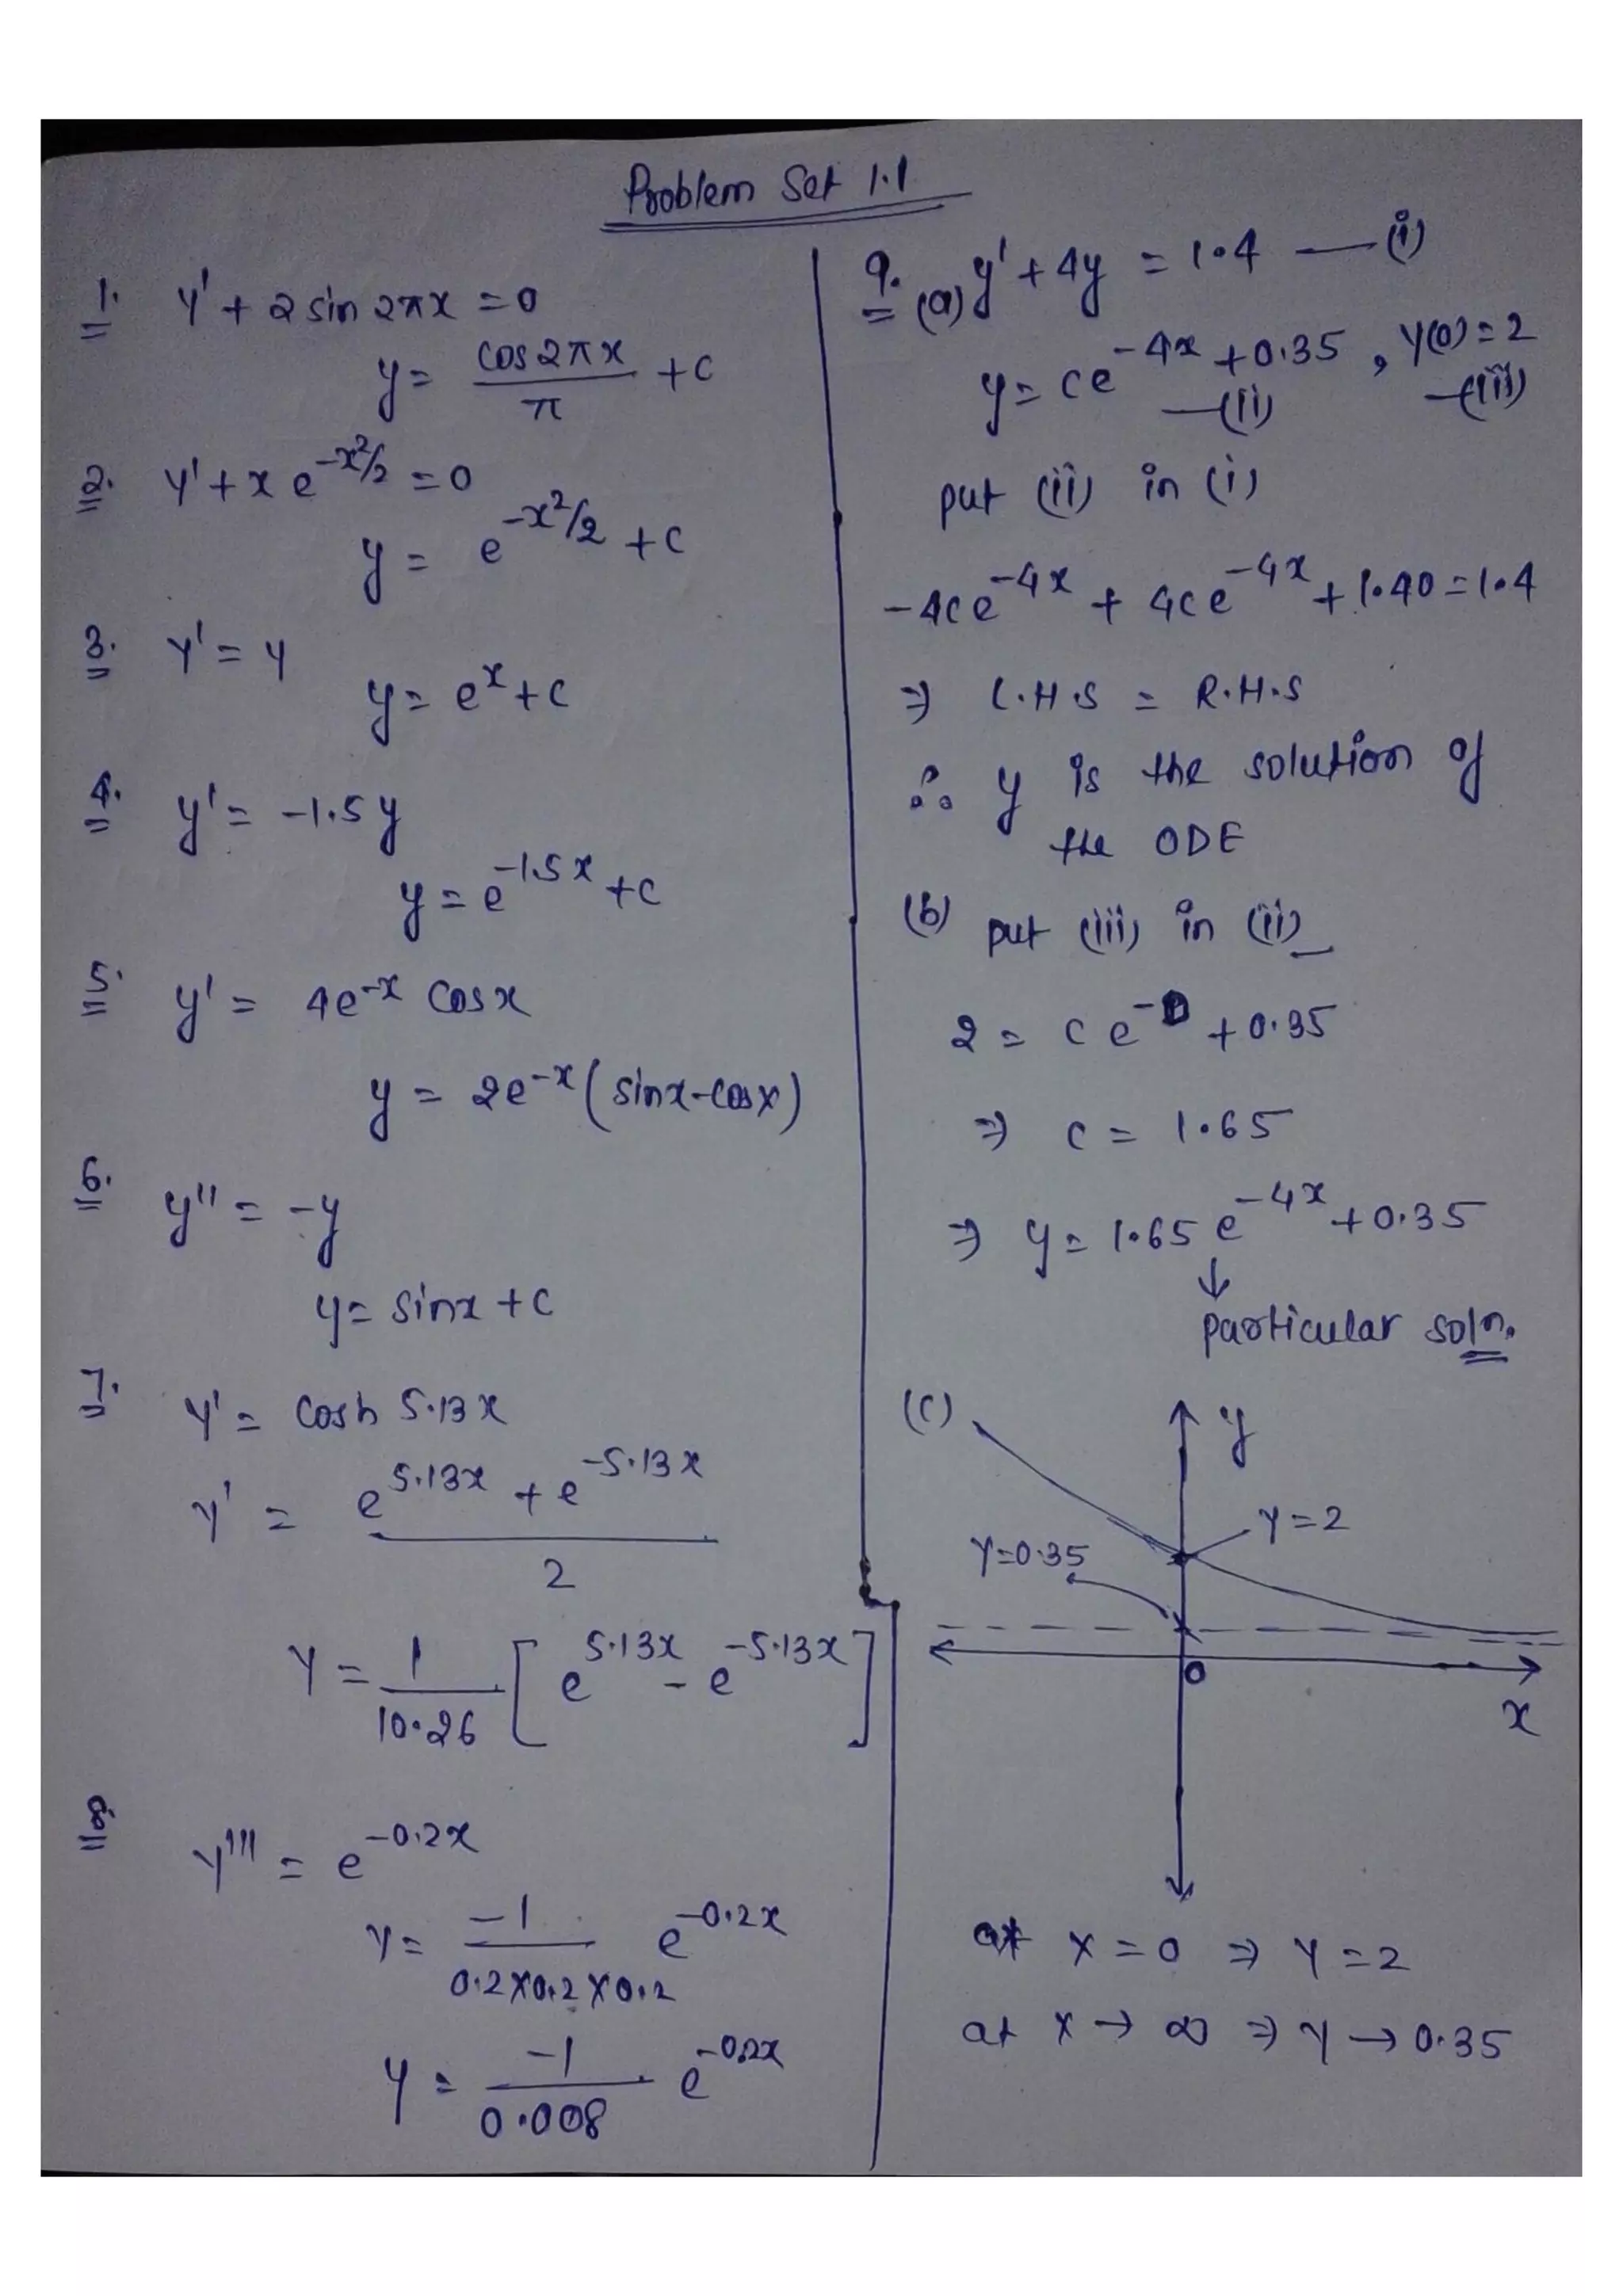 Problem Set 1.1
1. y' + 2 sin 2πx = 0
y = cos2πx/π + c
2. y' + x e^(-x²/2) = 0
y = e^(-x²/2) + c
3. y' = y
y = e^x + c
4. y' = -1.5y
y = e^(-1.5x) + c
5. y' = 4e^(-x) cosx
y = 2e^(-x)(sinx-cosx)
6. y'' = -y
y = sinx + c
7. y' = cosh 5.13x
y' = (e^(5.13x) + e^(-5.13x))/2
y = 1/10.26 [e^(5.13x) - e^(-5.13x)]
8. y''' = e^(-0.2x)
y = -1/(0.2×0.2×0.2) e^(-0.2x)
y = -1/0.008 e^(-0.2x)
9. (a) y' + 4y = 1.4 — (i)
y = ce^(-4x) + 0.35 , y(0) = 2
—(ii) —(iii)
put (ii) in (i)
-4ce^(-4x) + 4ce^(-4x) + 1.40 = 1.4
⇒ L.H.S = R.H.S
∴ y is the solution of
the ODE
(b) put (iii) in (ii)
2 = ce^(-0) + 0.35
⇒ c = 1.65
⇒ y = 1.65 e^(-4x) + 0.35
↓
particular soln.
(c)
y
y=2
y=0.35
0
x
at x = 0 ⇒ y = 2
at x → ∞ ⇒ y → 0.35